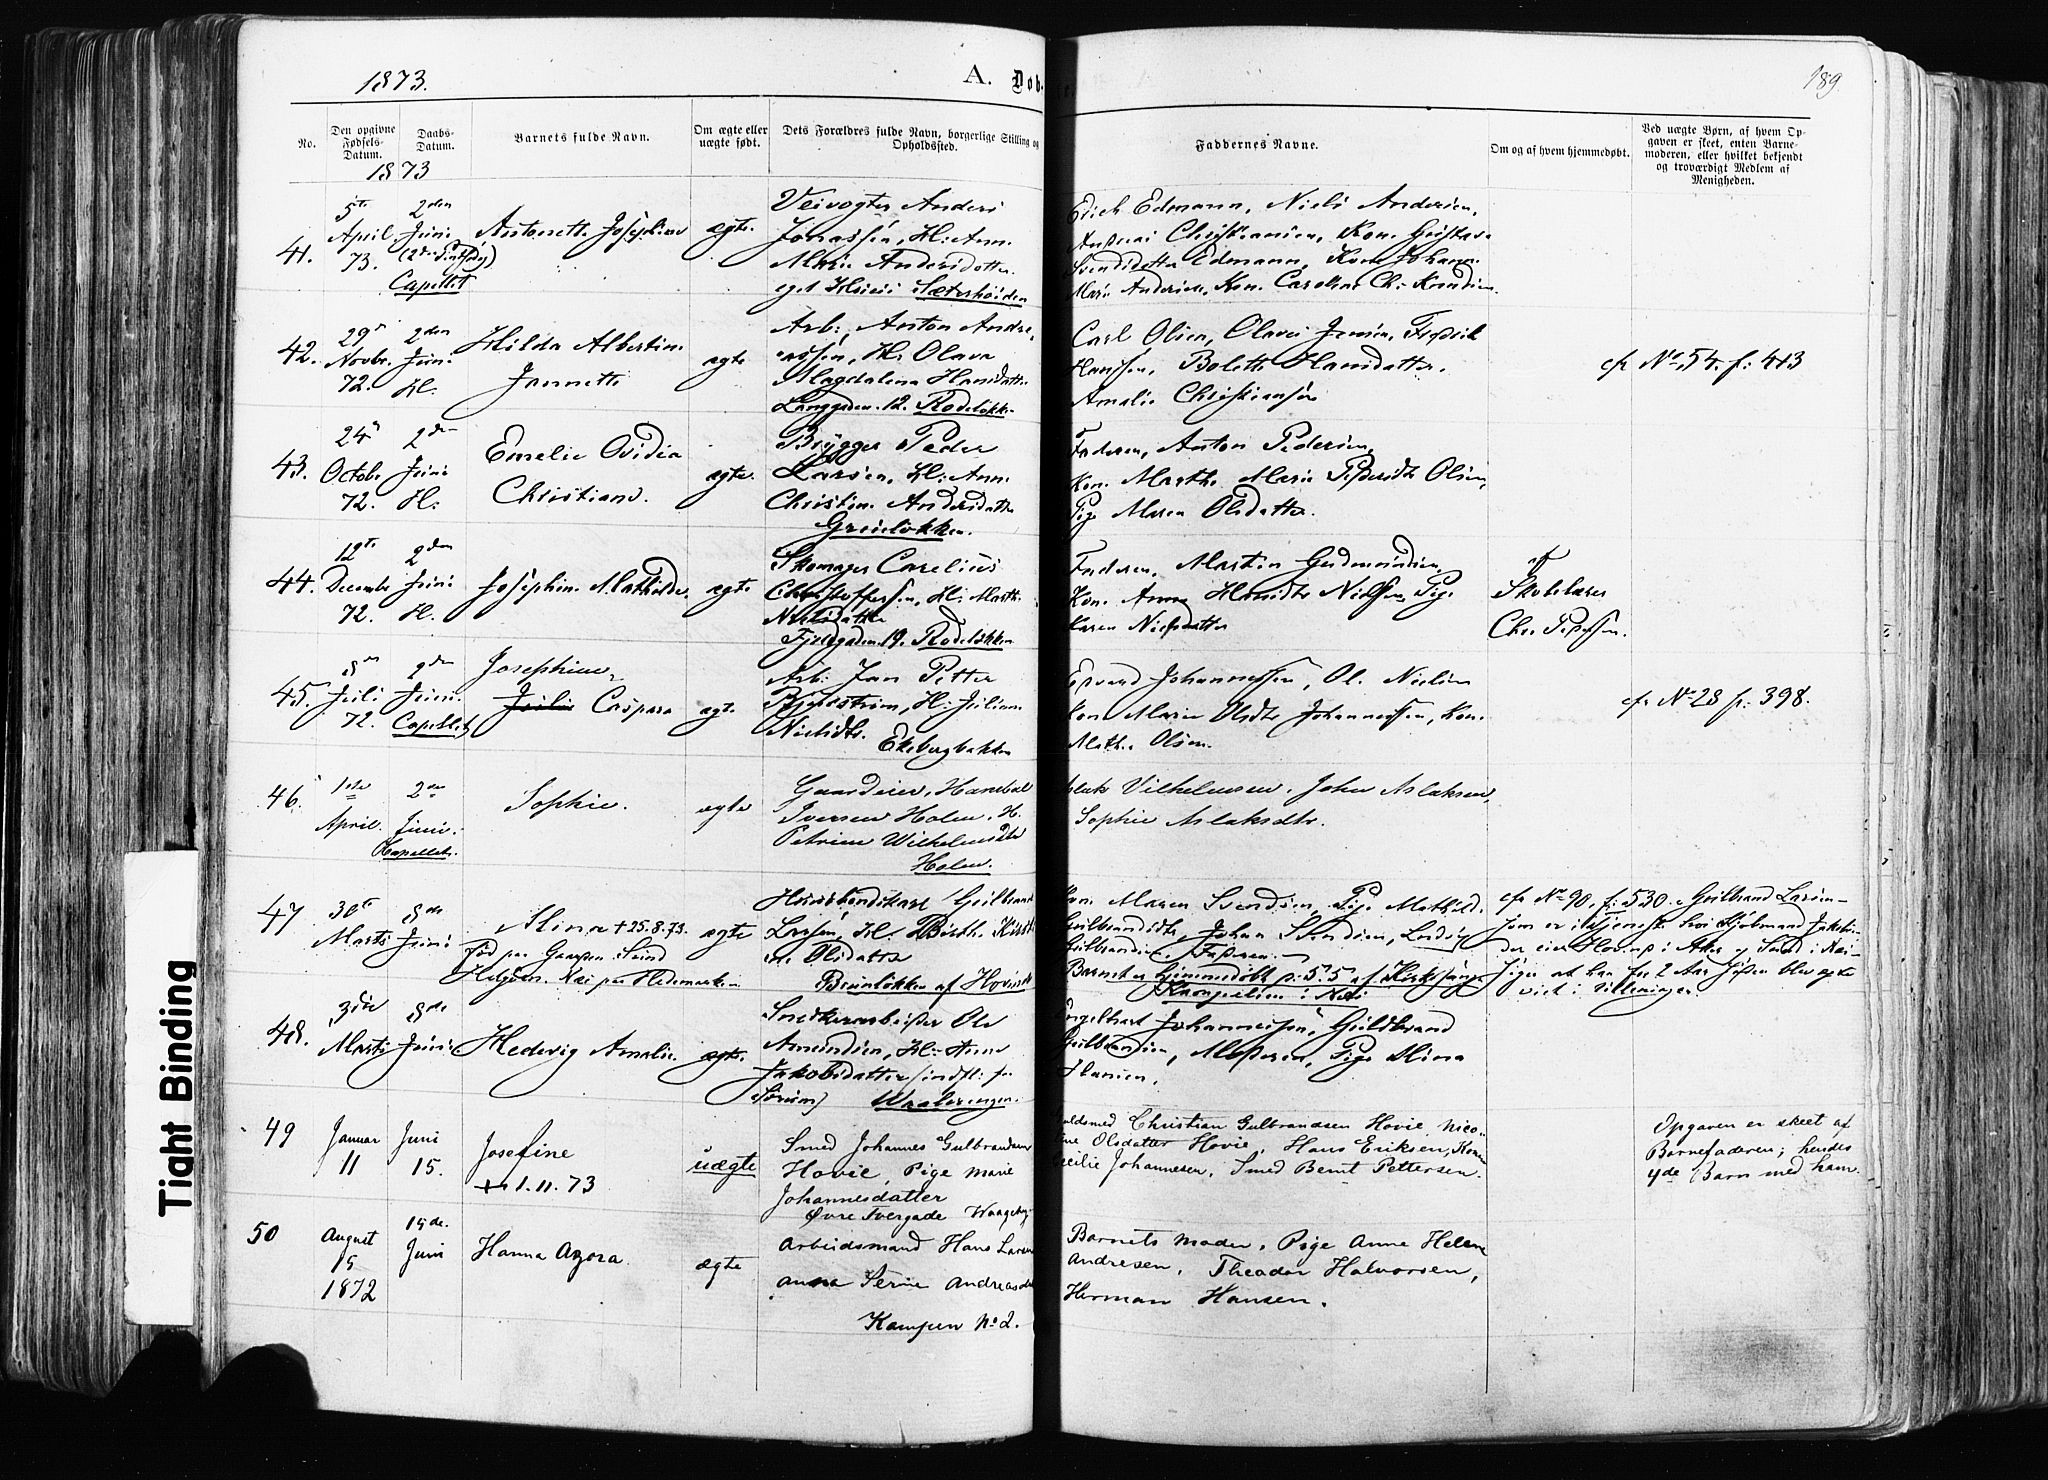 1873.
A. Døb-
189
No.
Den opgivne Fødsels-Datum.
Daabs-Datum.
Barnets fulde Navn.
Om ægte eller uægte født.
Dets Forældres fulde Navn, borgerlige Stilling og Opholdssted.
Faddernes Navne.
Om og af hvem hjemmedøbt.
Ved uægte Børn, af hvem Opgaven er skeet, enten Barnemoderen, eller hvilket bekjendt og troværdigt Medlem af Menigheden.
1873
41.
5te April 73.
2den Juni
Capellet
Antonette Josephine
ægte.
Veivogter Anders
Jonassen, H: Anne
Marie Andersdatter
eget Huus Sæterhøiden
Erich Edmann, Niels Andersen,
Andreas Christiansen, Kon. Gustava
Svendsdatter Edmann, Kone Johanne
Marie Andersen, Kon. Caroline Chr. Knudsen.
42.
29 Novbr. 72.
2den Juni
Kl.
Hilda Albertine
Jannette
ægte
Arb: Anton Andre-
assen, H: Olava
Magdalena Hansdatter
Langgaden 12. Rodeløkken
Carl Olsen, Olaves Jensen, Fredrik
Hanssen, Bolette Hansdatter,
Amalie Christiansen
cfr No 54. f: 413
43.
24 Octobr 72.
2den Juni
Kl.
Emelie Ovidia
Christiane.
ægte.
Brygger Peder
Larsen, H: Anne
Christine Andersdatter
Grünløkken.
Faderen, Anton Pedersen,
Kon. Marthe Marie Pedersdtr Olsen,
Pige Maren Olsdatter.
44.
12te December 72.
2den Juni
Kl.
Josephine Mathilde
ægte
Skomager Carelius
Christoffersen, H: Marthe
Nielsdatter
Fjeldgaden 19. Rodeløkken
Faderen, Martin Gudmundsen,
Kon. Anne Hansdtr Nielsen, Pige
Karen Nielsdatter
af
Skolelærer
Chr. Pedersen.
45.
8 Juli 72.
2den Juni.
Capellet
Josephine
Julie Caspara
ægte
Arb: Jan Petter
Bjerkstrøm, H: Juliane
Nielsdtr.
Ekebergbakken
Edvard Johannessen, Ol. Nielsen
Kon. Marie Olsdtr Johannessen, Kon.
Mathe Olsen.
cfr No 28 f: 398.
46.
1ste April.
2den Juni.
Kapellet.
Sophie.
ægte
Gaardeier, Hanibal
Iversen Holm. H.
Petrine Wilhelmsdtr
Holm.
Vilhelmsen, John Aslaksen,
Sophie Aslaksdtr.
47
30te Marts
8de Juni
Mina + 25.8.73.
ægte
Huusbondskarl Gulbrand
Larsen, H: Birthe Kirst-
ine Olsdatter
Brünløkken af Hovind
Kon. Maren Svendsen, Pige Mathild.
Gulbrandsdtr, Johan Svendsen, Ludvig
Gulbrandsen, Faderen.
Barnet er hjemmedøbt
cfr No 90. f: 530. Gulbrand Larsen
48.
3die Marts
8de Juni
Hedevig Amalie.
ægte.
Snedkerarbeider Ole
Amundsen, H: Anne
Jakobsdatter (indfl: fra
Sørum) Waalerengen.
Engelbret Johannessen, Guldbrand
Gulbrandsen, Moderen, Pige Mina
Hansen.
49
Januar
11
Juni
15.
Josefine
+ 1.11.73
uægte
Smed Johannes Gulbrandsen
Hovie, Pige Marie
Johannesdatter
Øvre Tvergade
Guldsmed Christian Gulbrandsen Hovie Nico-
line Olsdatter Hovie, Hans Eriksen, Kone
Cecilie Johannesen, Smed Bernt Pettersen.
Opgaven er skeet af
Barnefaderen; hendes
4de Barn med ham.
50
August
15
1872
15de.
Juni
Hanna Azora.
ægte
Arbeidsmand Hans Larsen
Anna Serine Andreasdtr
Kampen No 2.
Barnets Moder, Pige Anne Helene
Andresen, Theodor Halvorsen,
Herman Hansen.
Tight Binding